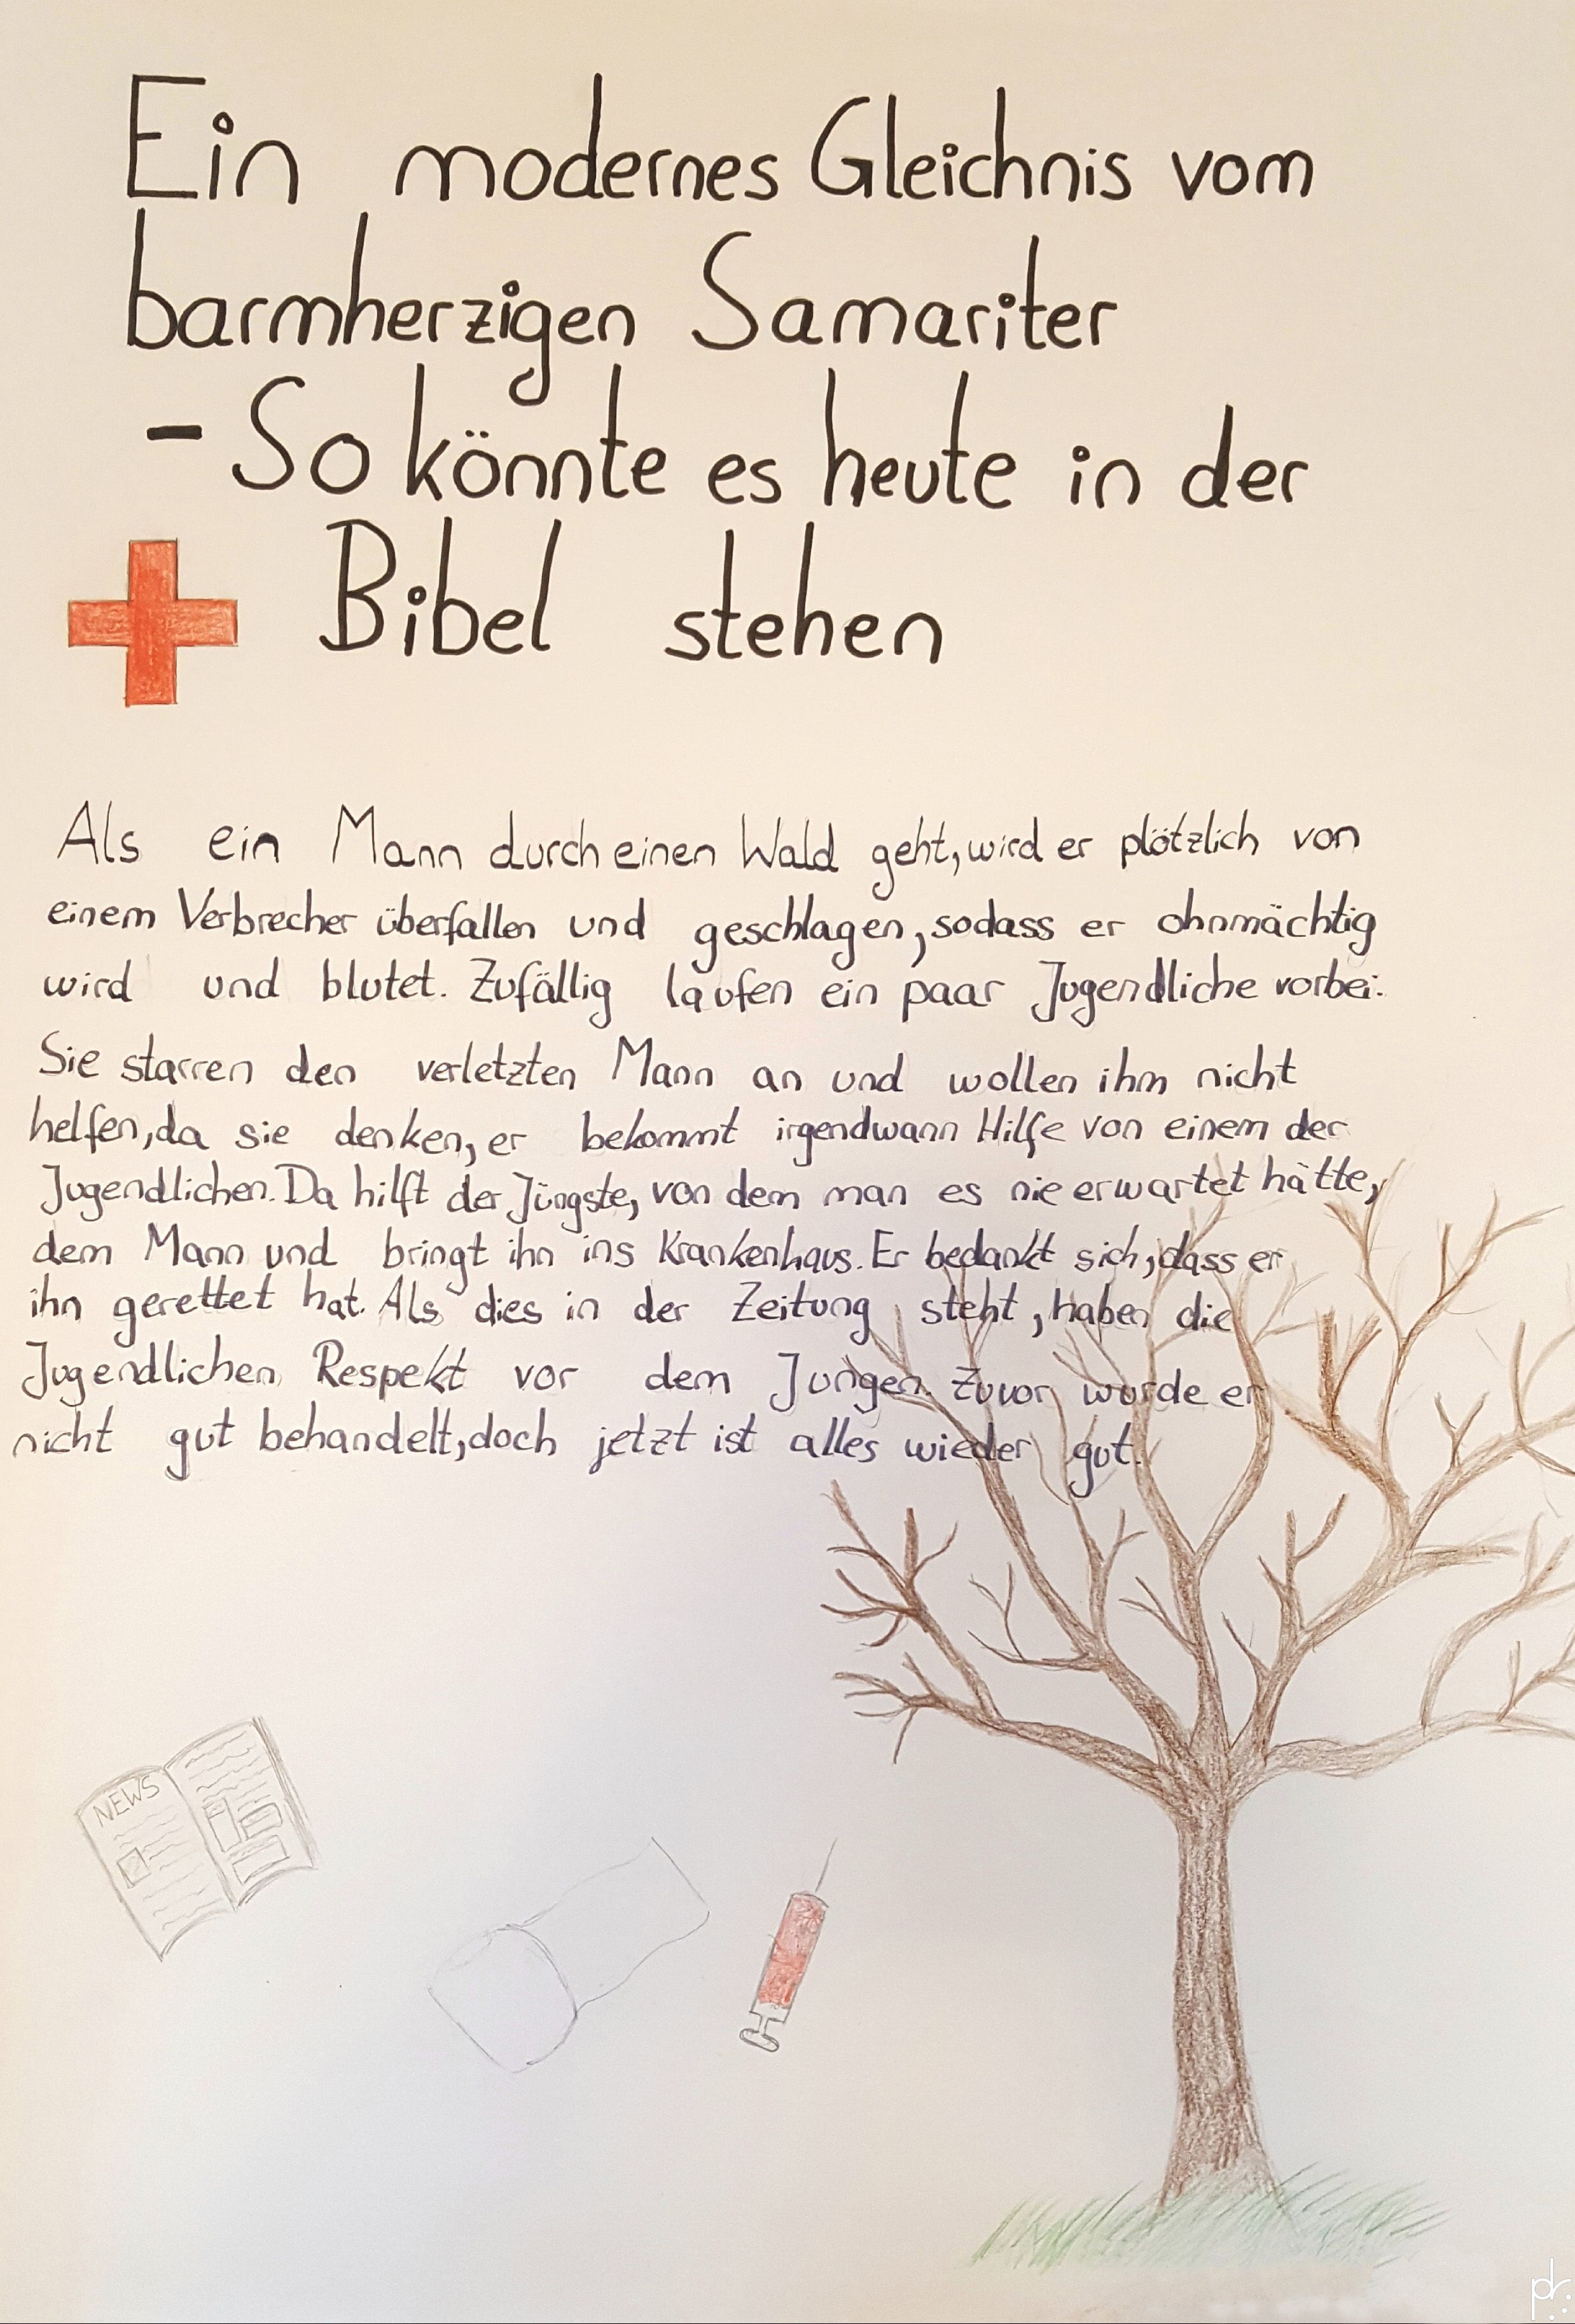 Ein modernes Gleichnis vom
barmherzigen Samariter
- So könnte es heute in der
Bibel stehen
Als ein Mann durch einen Wald geht, wird er plötzlich von
einem Verbrecher überfallen und geschlagen, sodass er ohnmächtig
wird und blutet. Zufällig laufen ein paar Jugendliche vorbei.
Sie starren den verletzten Mann an und wollen ihm nicht
helfen, da sie denken, er bekommt irgendwann Hilfe von einem der
Jugendlichen. Da hilft der Jüngste, von dem man es nie erwartet hätte,
dem Mann und bringt ihn ins Krankenhaus. Er bedankt sich, dass er
ihn gerettet hat. Als dies in der Zeitung steht, haben die
Jugendlichen Respekt vor dem Jungen. Zuvor wurde er
nicht gut behandelt, doch jetzt ist alles wieder gut.
NEWS